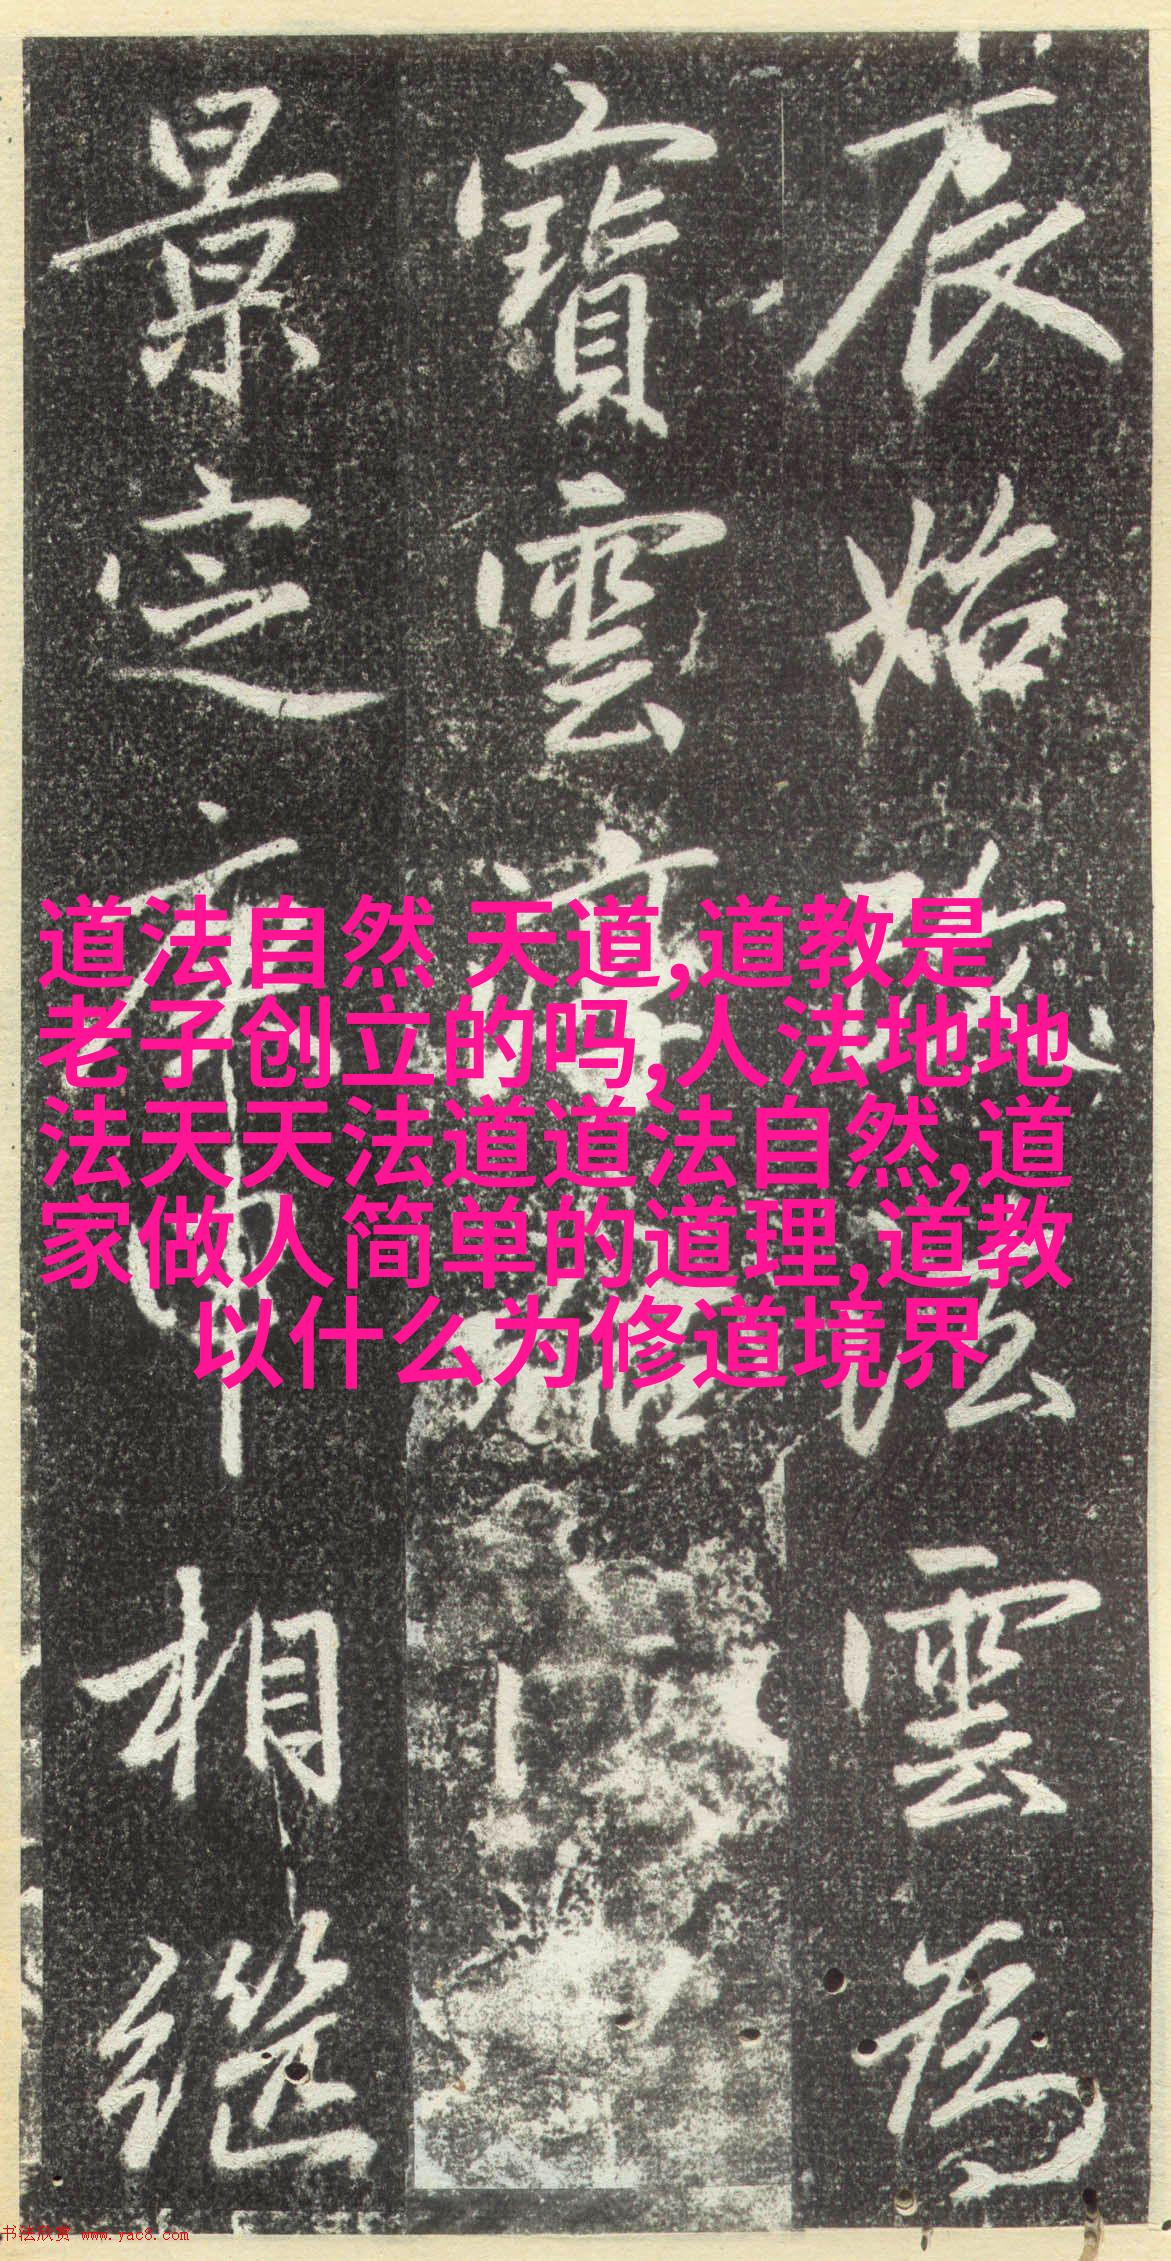 道法自然 天道,道教是
老子创立的吗,人法地地
法天天法道道法自然,道
家做人简单的道理,道教
以什么为修道境界
辰始
雲為
寶雲
景定
相繼
书法欣赏 www.yac8.com